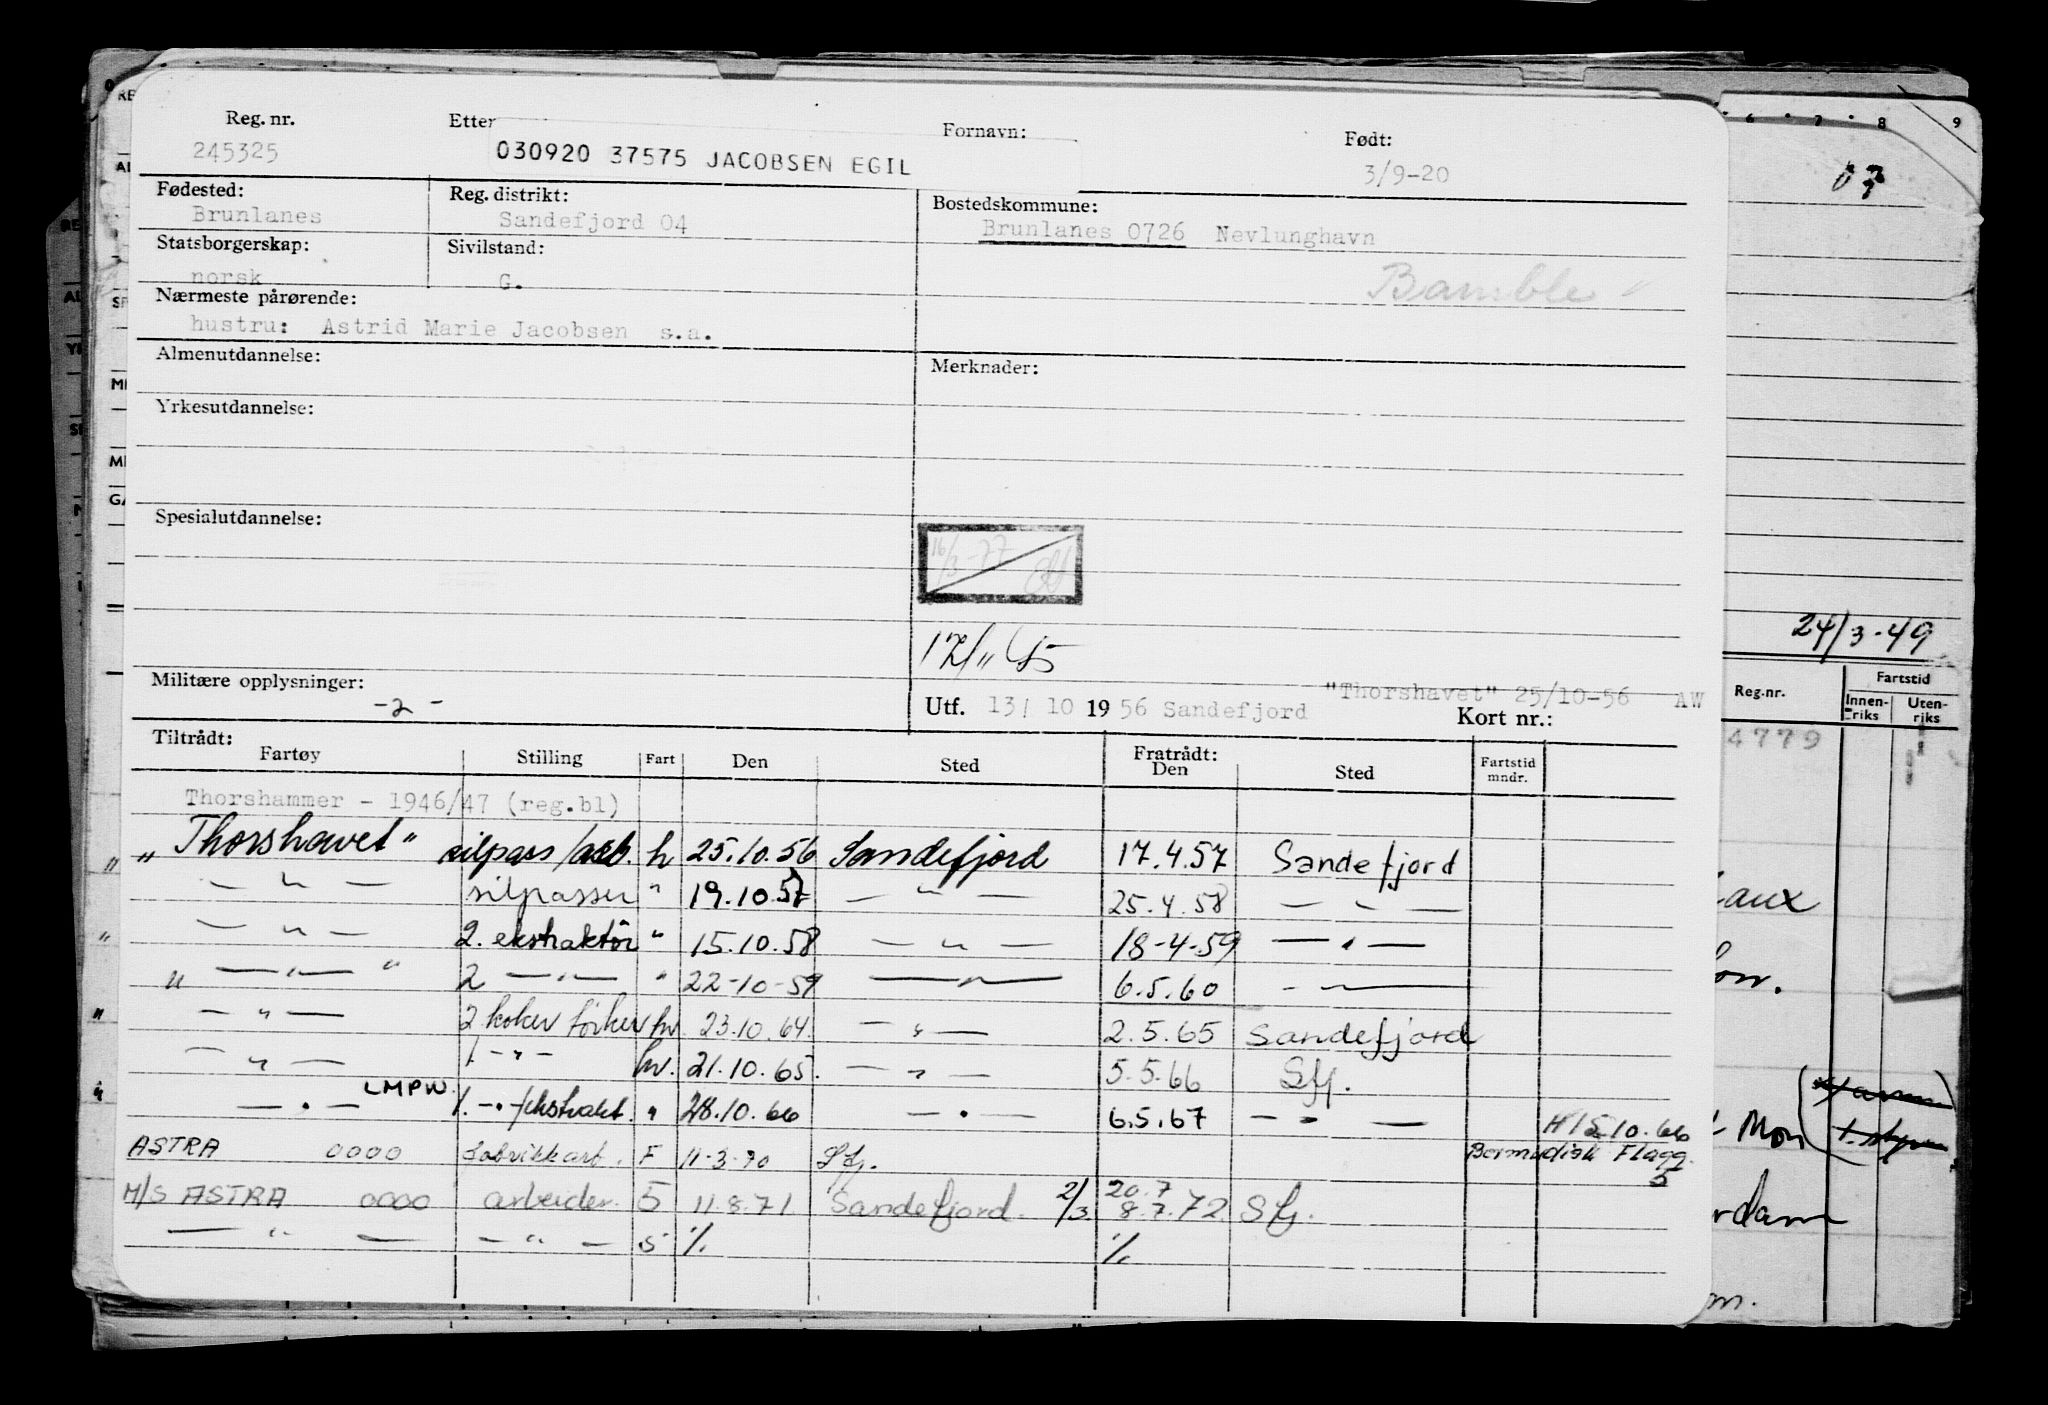 Reg. nr. Etter Fornavn: Født:
245325 030920 37575 JACOBSEN EGIL 3/9-20
Fødested: Reg. distrikt: Bostedskommune:
Brunlanes Sandefjord 04 Brunlanes 0726 Nevlunghavn
Statsborgerskap: Sivilstand:
norsk G. Bamble
Nærmeste pårørende:
hustru: Astrid Marie Jacobsen s.a.
Almenutdannelse: Merknader:
Yrkesutdannelse:
Spesialutdannelse:
16/3-77
Militære opplysninger: "Thorshavet" 25/10-56 AW
-2- Utf. 13/ 10 19 56 Sandefjord Kort nr.:
Tiltrådt: Fratrådt:
Fartøy Stilling Fart Den Sted Den Sted Fartstid mndr.
Thorshammer - 1946/47 (reg.bl)
" "Thorshavet" silpass/arb. h 25.10.56 Sandefjord 17.4.57 Sandefjord
— " — silpasser " 19.10.57 — " — 25.4.58 — " —
" — " — 2. ekstraktör " 15.10.58 — " — 18-4-59 — " —
" — " — " 2 — " — " 22-10-59 — " — 6.5.60 - " —
" — " — 2 koker törker hv. 23.10.64. — " — 2.5.65 Sandefjord
— " — 1 - " - hv. 21.10.65. — " — 5.5.66 Sfj.
" — " — LMPW. 1. - " -/ekstrakt. " 28.10.66 — " — 6.5.67 — " — H 15 10.66
ASTRA 0000 fabrikkarb. F 11-3-70 Sfj. Bermudisk Flagg.
5
M/S ASTRA 0000 arbeider. 5 11.8.71 Sandefjord. 2/3. 20.7 8.7.72. Sfj.
— " — — " — 5 %. %.
6 7 8 9
24/3-49
Reg.nr. Fartstid
Innen-riks Uten-riks
4779